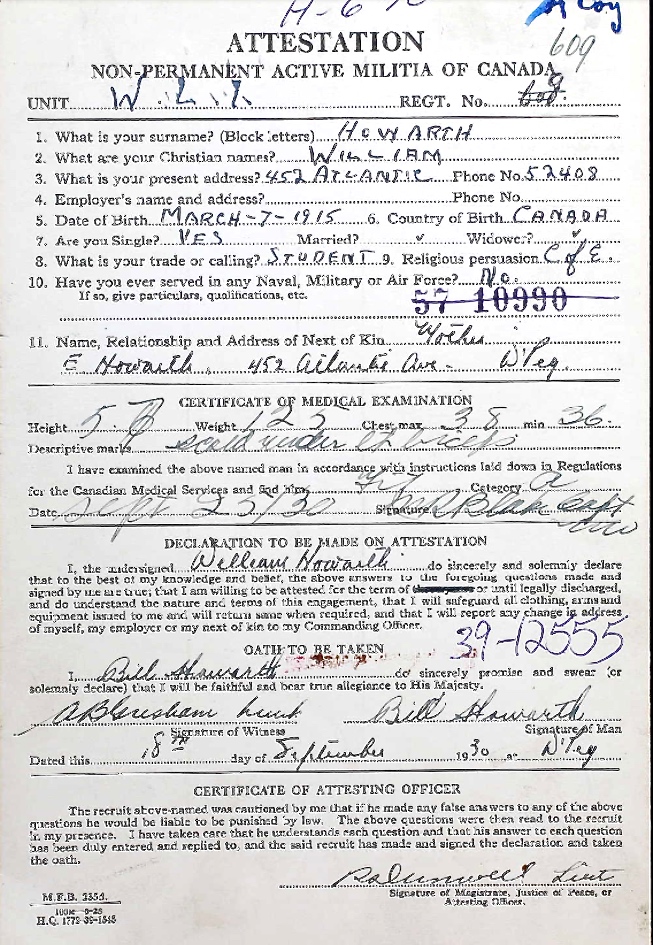 H-6
A Coy
609
ATTESTATION
NON-PERMANENT ACTIVE MILITIA OF CANADA
UNIT REGT. No.
1. What is your surname? (Block letters) HOWARTH
2. What are your Christian names? WILLIAM
3. What is your present address? 452 ATLANTIC Phone No. 52408
4. Employer's name and address? Phone No.
5. Date of Birth MARCH-7-1915 6. Country of Birth CANADA
7. Are you Single? YES Married? Widower?
8. What is your trade or calling? STUDENT 9. Religious persuasion C of E.
10. Have you ever served in any Naval, Military or Air Force? No.
If so, give particulars, qualifications, etc.
57 10990
11. Name, Relationship and Address of Next of Kin Mother
E Howarth, 452 Atlantic Ave. W'Peg.
CERTIFICATE OF MEDICAL EXAMINATION
Height 5. Weight 125 Chest max 38 min 36.
Descriptive marks scald under biceps
I have examined the above named man in accordance with instructions laid down in Regulations
for the Canadian Medical Services and find him Fit Category A
Date Sept 25/30 Signature Capt
DECLARATION TO BE MADE ON ATTESTATION
I, the undersigned William Howarth do sincerely and solemnly declare
that to the best of my knowledge and belief, the above answers to the foregoing questions made and
signed by me are true; that I am willing to be attested for the term of or until legally discharged,
and do understand the nature and terms of this engagement, that I will safeguard all clothing, arms and
equipment issued to me and will return same when required, and that I will report any change in address
of myself, my employer or my next of kin to my Commanding Officer.
39-12555
OATH TO BE TAKEN
I, Bill Howarth do sincerely promise and swear (or
solemnly declare) that I will be faithful and bear true allegiance to His Majesty.
A B Gresham Lieut Bill Howarth
Signature of Witness Signature of Man
Dated this 18th day of September 1930 at W'Peg
CERTIFICATE OF ATTESTING OFFICER
The recruit above-named was cautioned by me that if he made any false answers to any of the above
questions he would be liable to be punished by law. The above questions were then read to the recruit
in my presence. I have taken care that he understands each question and that his answer to each question
has been duly entered and replied to, and the said recruit has made and signed the declaration and taken
the oath.
Lieut
Signature of Magistrate, Justice of Peace, or
Attesting Officer.
M.F.B. 235d.
100M 9-28
H.Q. 1772-39-1545